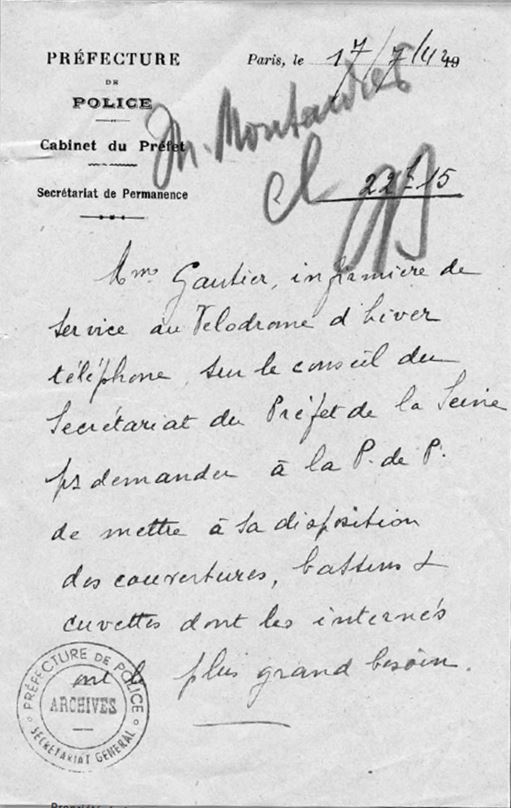 PRÉFECTURE
DE
POLICE
Cabinet du Préfet
Secrétariat de Permanence
Paris, le 17/7/42
22h15
Mme Gautier, infirmière de
service au Vélodrome d'hiver
téléphone, sur le conseil du
Secrétariat du Préfet de la Seine
pr demander à la P. de P.
de mettre à sa disposition
des couvertures, bassins &
cuvettes dont les internés
ont le plus grand besoin.
PRÉFECTURE DE POLICE
ARCHIVES
SECRÉTARIAT GÉNÉRAL